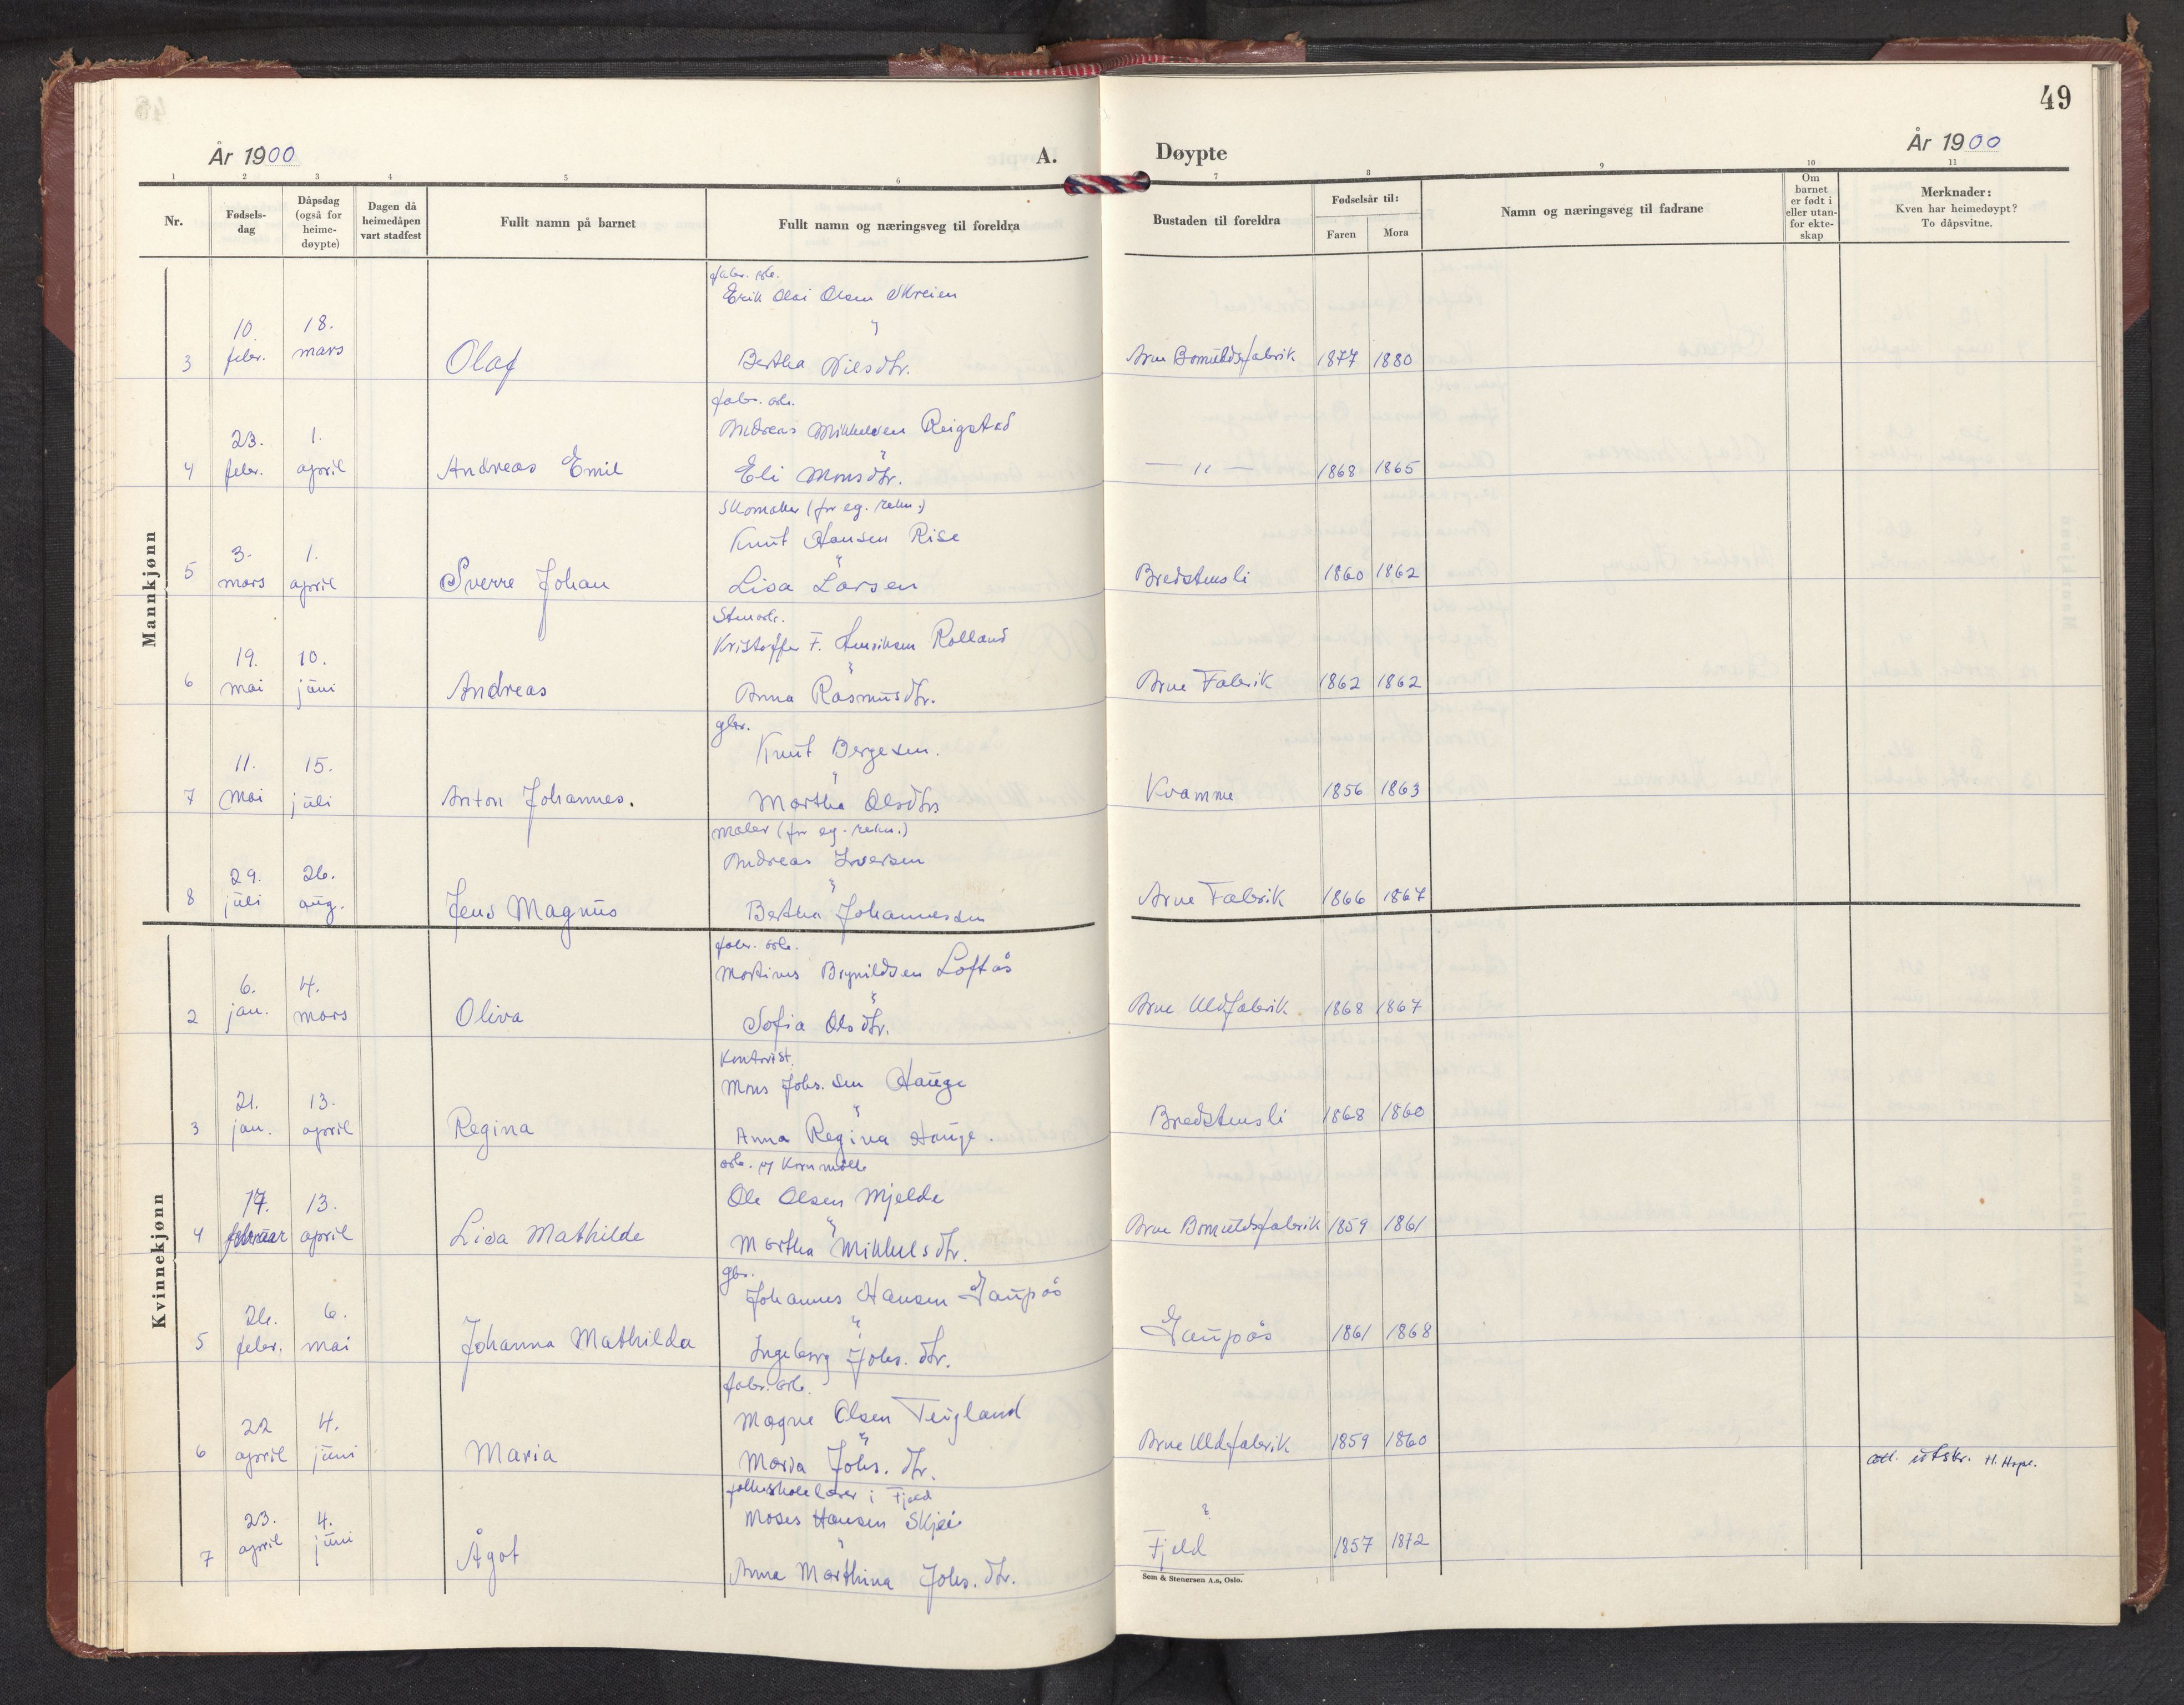 49
År 1900
A.
Døypte
År 1900
1 2 3 4 5 6 7 8 9 10 11
Nr.
Fødsels-
dag
Dåpsdag
(også for
heime-
døypte)
Dagen då
heimedåpen
vart stadfest
Fullt namn på barnet
Fullt namn og næringsveg til foreldra
Bustaden til foreldra
Fødselsår til:
Faren Mora
Namn og næringsveg til fadrane
Om
barnet
er født i
eller utan-
for ekte-
skap
Merknader:
Kven har heimedøypt?
To dåpsvitne.
Mannkjønn
fabr. arb.
Erik Olai Olsen Skreien
"
3 10. febr. 18. mars Olaf Bertha Nilsdtr. Arne Bomuldsfabrik 1877 1880
fabr. arb.
Andreas Mikkelsen Reigstad
"
4 23. febr. 1. april Andreas Emil Eli Monsdtr. — " — 1868 1865
Skomaker (for eg. rekn.)
Knut Hansen Rise
"
5 3. mars 1. april Sverre Johan Lisa Larsen Bredstensli 1860 1862
Stenarb.
Kristoffer F. Henriksen Rolland
"
6 19. mai 10. juni Andreas Anna Rasmusdtr. Arne Fabrik 1862 1862
gbr.
Knut Bergesen.
"
7 11. mai 15. juli Anton Johannes. Martha Olsdtr Kvamme 1856 1863
Maler (for eg. rekn.)
Andreas Iversen
"
8 29. juli 26. aug. Jens Magnus Bertha Johannessen Arne Fabrik 1866 1867
Kvinnekjønn
fabr. arb.
Martinus Brynildsen Loftås
"
2 6. jan. 4. mars Oliva Sofia Olsdtr. Arne Uldfabrik 1868 1867
Kontorist.
Mons Johs. sen Hauge
"
3 21. jan. 13. april Regina Anna Regina Hauge. Bredstensli 1868 1860
arb. på Kornmølle
Ole Olsen Mjelde
"
4 17. februar 13. april Lisa Mathilde Martha Mikkelsdtr. Arne Bomuldsfabrik 1859 1861
gbr.
Johannes Hansen Gaupås
"
5 26. febr. 6. mai Johanna Mathilda Ingeborg Johs. dtr. Gaupås 1861 1868
fabr. arb.
Magne Olsen Teigland
"
6 22 april 4. juni Maria Maria Johs. dtr. Arne Uldfabrik 1859 1860
att. utskr. H. Hope.
folkeskolelærer i Fjeld
Moses Hansen Skjei
"
7 23. april 4. juni Ågot Anna Marthina Johs. dtr. Fjeld 1857 1872
Sem & Stenersen A.s, Oslo.